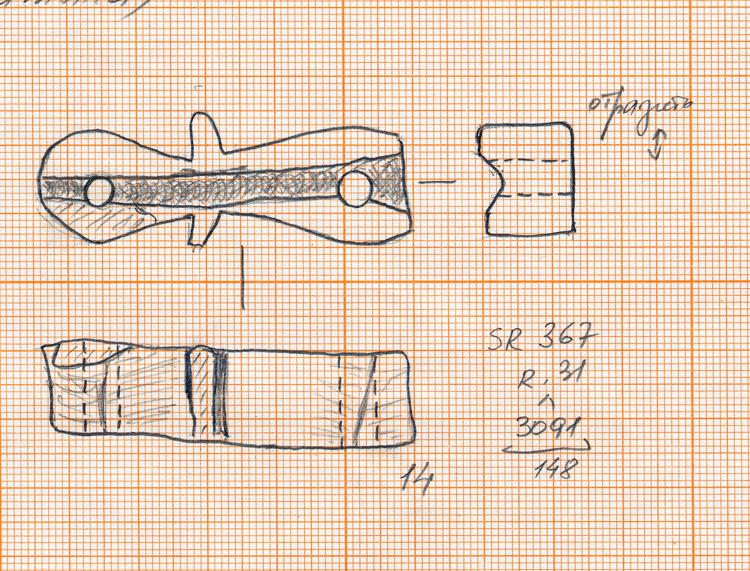 отразить
SR 367
R. 31
3091
148
14